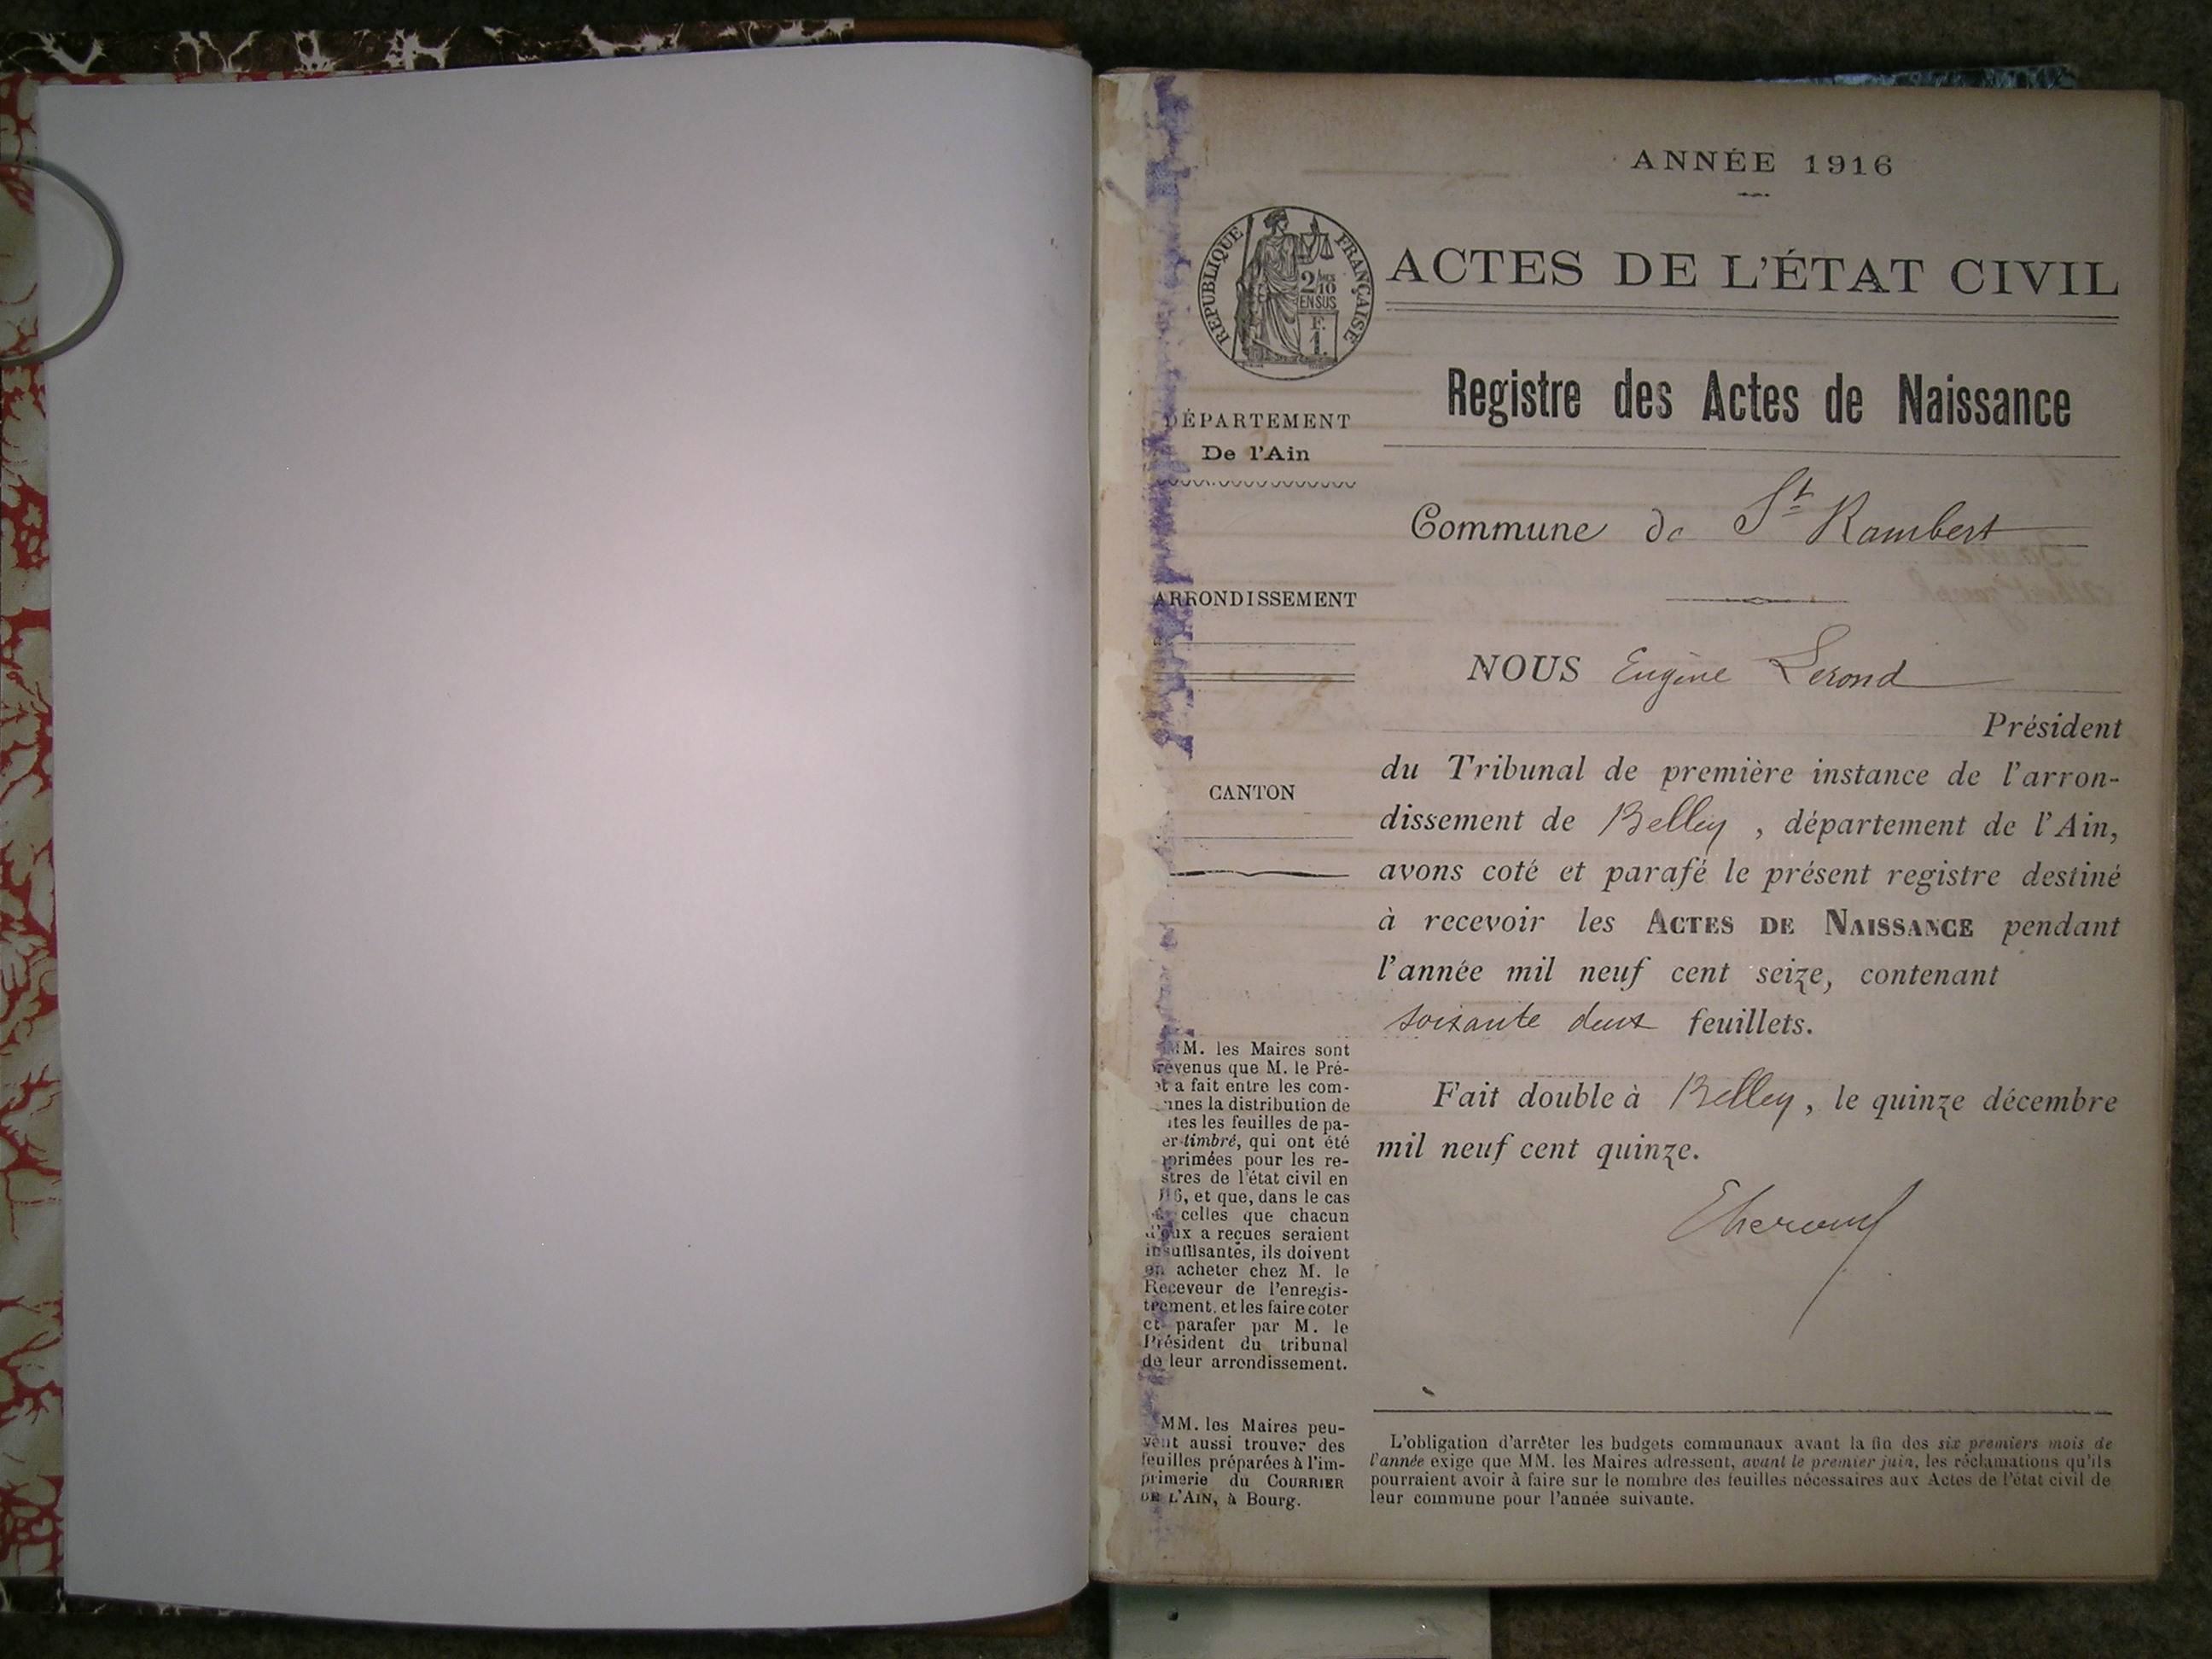 ANNÉE 1916
RÉPUBLIQUE FRANÇAISE
2/10
EN SUS
F.
1.
ACTES DE L'ÉTAT CIVIL
Registre des Actes de Naissance
DÉPARTEMENT
De l'Ain
Commune de St Rambert
ARRONDISSEMENT
CANTON
NOUS Eugène Lerond
Président
du Tribunal de première instance de l'arron-
dissement de Belley, département de l'Ain,
avons coté et parafé le présent registre destiné
à recevoir les ACTES DE NAISSANCE pendant
l'année mil neuf cent seize, contenant
soixante deux feuillets.
Fait double à Belley, le quinze décembre
mil neuf cent quinze.
MM. les Maires sont
prévenus que M. le Pré-
et a fait entre les com-
unes la distribution de
ites les feuilles de pa-
er timbré, qui ont été
primées pour les re-
stres de l'état civil en
16, et que, dans le cas
celles que chacun
d'eux a reçues seraient
insuffisantes, ils doivent
en acheter chez M. le
Receveur de l'enregis-
trement, et les faire coter
et parafer par M. le
Président du tribunal
de leur arrondissement.
MM. les Maires peu-
vent aussi trouver des
feuilles préparées à l'im-
primerie du COURRIER
DE L'AIN, à Bourg.
L'obligation d'arrêter les budgets communaux avant la fin des six premiers mois de
l'année exige que MM. les Maires adressent, avant le premier juin, les réclamations qu'ils
pourraient avoir à faire sur le nombre des feuilles nécessaires aux Actes de l'état civil de
leur commune pour l'année suivante.